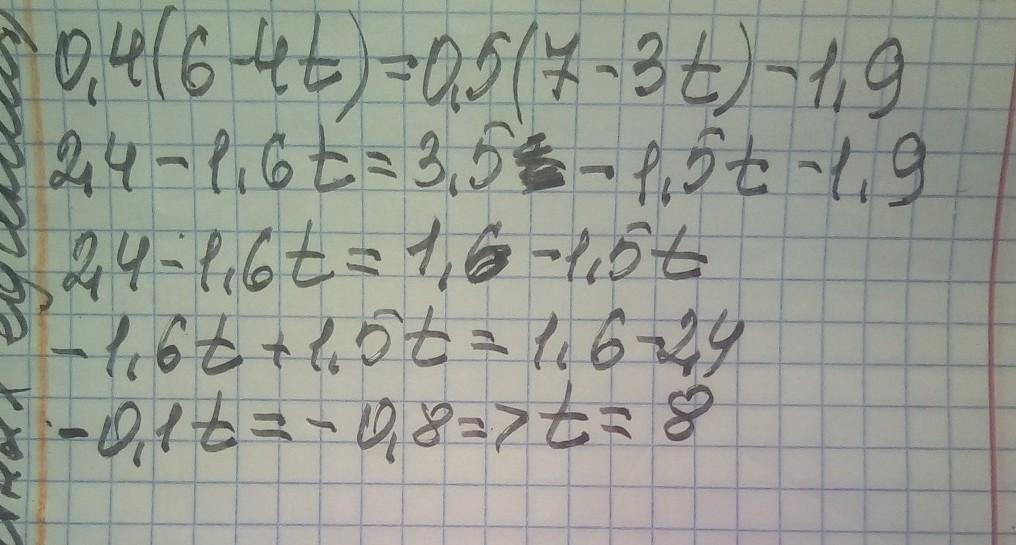 0,4(6-4t)=0,5(7-3t)-1,9
2,4-1,6t=3,5-1,5t-1,9
2,4-1,6t=1,6-1,5t
-1,6t+1,5t=1,6-2,4
-0,1t=-0,8=>t=8